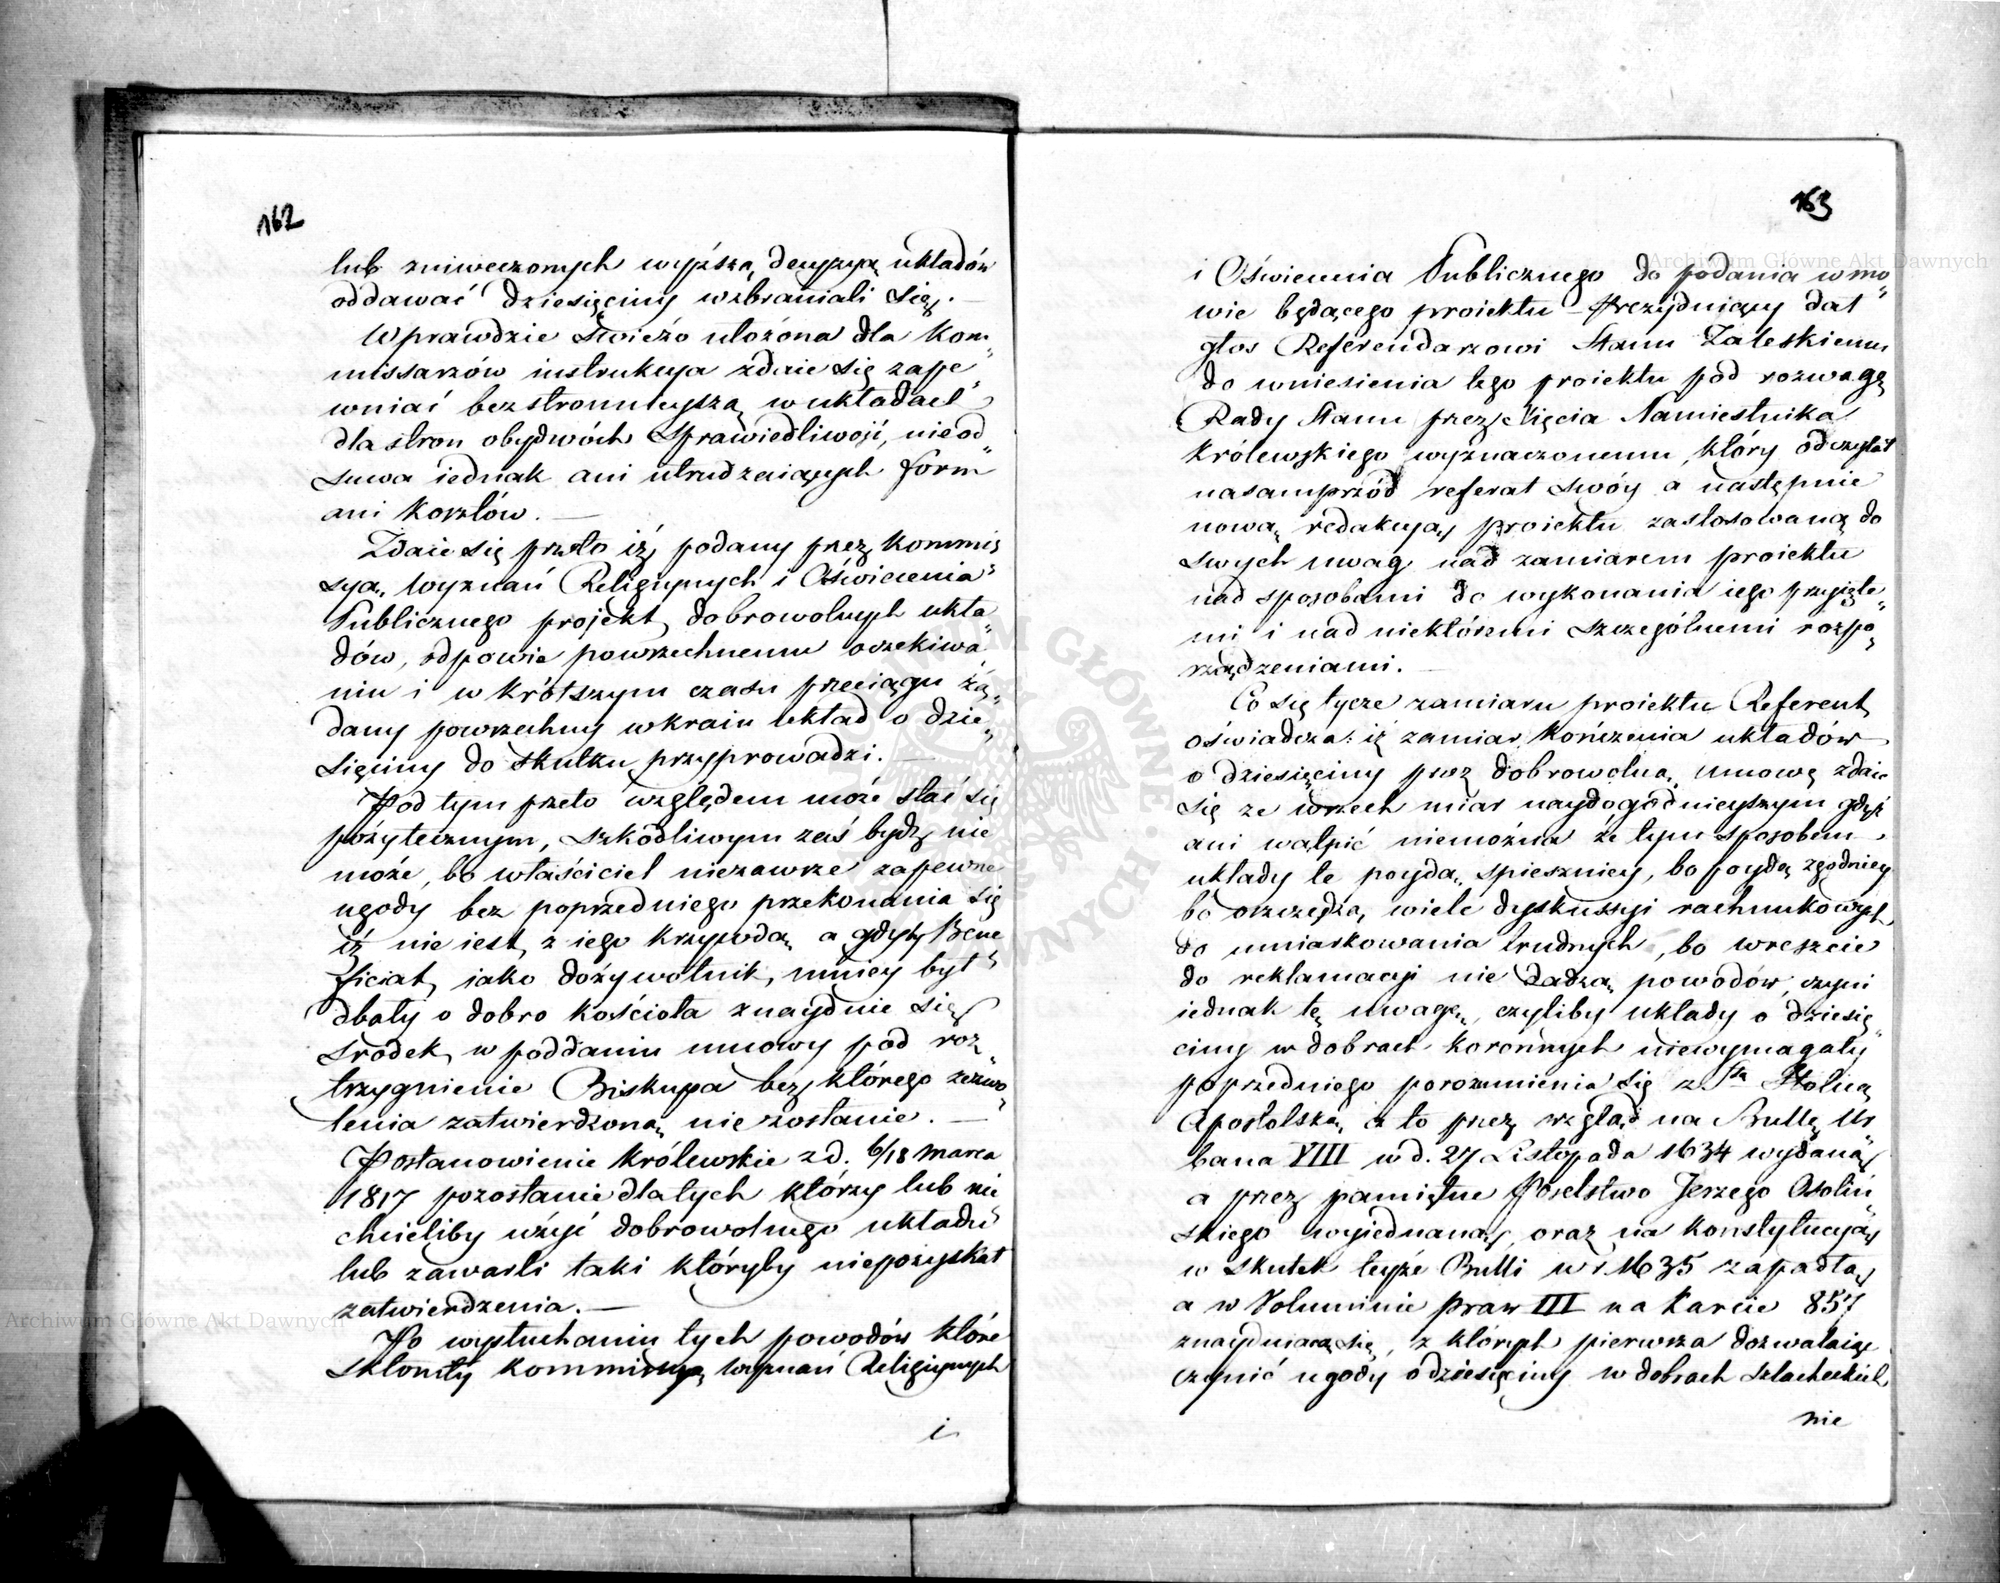 162
lub zniweczonych wyższą decyzyą układów
oddawać dziesięciny wzbraniali się. —
Wprawdzie świeżo ułożona dla Kom„
missarzów instrukcya zdaie się zape„
wniać bezstronnieyszą w układach
dla stron obydwóch sprawiedliwość, nie od„
suwa iednak ani utrudzaiących form
ani kosztów. —
Zdaie się przeto iż podany przez Kommis„
syą Wyznań Religiynych i Oświecenia
Publicznego projekt dobrowolnych ukła„
dów, odpowie powszechnemu oczekiwa„
niu i w krótszym czasu przeciągu żą„
dany powszechny w kraiu układ o dzie„
sięciny do skutku przyprowadzi. —
Pod tym przeto względem może stać się
pożytecznym, szkodliwym zaś bydź nie
może, bo właściciel niezawrze zapewne
ugody bez poprzedniego przekonania się
iż nie iest z iego krzywdą a gdyby Bene„
ficiat jako dożywotnik, mniey był
dbały o dobro kościoła znayduie się
środek w poddaniu umowy pod roz„
trzygnienie Biskupa bez którego zezwo„
lenia zatwierdzoną nie zostanie. —
Postanowienie Królewskie z d. 6/18 Marca
1817 pozostanie dla tych którzy lub nie
chcieliby użyć dobrowolnego układu
lub zawarli taki któryby niepozyskał
zatwierdzenia. —
Po wysłuchaniu tych powodów które
skłoniły Kommissyą Wyznań Religiynych
i
163
i Oświecenia Publicznego do podania w mo„
wie będącego proiektu — Prezyduiący dał
głos Referendarzowi Stanu Zaleskiemu
do wniesienia tego proiektu pod rozwagę
Rady Stanu przez Xięcia Namiestnika
Królewskiego wyznaczonemu, który odczytał
nasamprzód referat swóy a następnie
nową redakcyą proiektu zastosowaną do
swych uwag nad zamiarem proiektu
nad sposobami do wykonania iego przyięte„
mi i nad niektóremi szczególnemi rozpo„
rządzeniami. —
Co się tycze zamiaru proiektu Referent
oświadcza: iż zamiar kończenia układów
o dziesięciny przez dobrowolną umowę zdaie
się ze wszech miar naydogodnieyszym gdyż
ani wątpić niemożna że tym sposobem
układy te poydą spieszniey, bo poydą zgodniey
bo oszczędzą wiele dyskussyi rachunkowych
do umiarkowania trudnych, bo wreszcie
do reklamacyi nie dadzą powodów, czyni
iednak tę uwagę, czyliby układy o dziesię„
ciny w dobrach koronnych niewymagały
poprzedniego porozumienia się z Sta Stolicą
Apostolską a to przez wzgląd na Bullę Ur„
bana VIII w d. 27 Listopada 1634 wydaną
a przez pamiętne Poselstwo Jerzego Osoliń„
skiego wyiednaną, oraz na konstytucyą
w skutek teyże Bulli w r. 1635 zapadłą
a w Voluminie Praw III na karcie 857
znayduiącą się, z których pierwsza dozwalaiąc
czynić ugody o dziesięciny w dobrach szlacheckich
nie
Archiwum Główne Akt Dawnych
Archiwum Główne Akt Dawnych